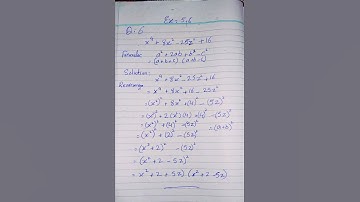 Ex: 5.6
Q: 6
x⁴ + 8x² - 25z² + 16
Formula: a² + 2ab + b² - c²
= (a+b+c) (a+b-c)
Solution:
x⁴ + 8x² - 25z² + 16
Rearrange
= x⁴ + 8x² + 16 - 25z²
= (x²)² + 8x² + (4)² - (5z)²
= (x²)² + 2(x²)(4) + (4)² - (5z)²
= (x²)² + (4)² - (5z)²
= (x²)² + (2)² - (5z)² = (a+b)²
= (x² + 2)² - (5z)²
= (x² + 2 - 5z)²
= x² + 2 + 5z) (x² + 2 - 5z)